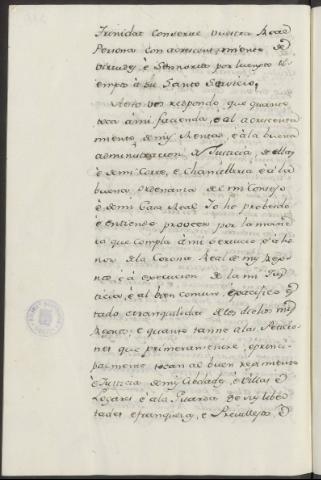 Trinidat conserve vuestra Real
Persona con acrescentamiento de
virtudes, è Sennorios por luengos ti
empos à su Santo Servicio,
A esto vos respondo, que quanto
toca à mi facienda, è al acrescenta
miento de mis Rentas, è à la buena
administracion de Justicia de ellas
è de mi Corte, è Chancilleria è à la
buena ordenanza del mi Consejo
è de mi Casa Real Yo he probeido
è entiendo proveer por la mane
ra que cumpla à mi servicio è à ho
nor de la Corona Real de mis Reg
nos, è à execucion de la mi Jus
ticia, è al bien comun, è pacifico es
tado, è tranquilidat de los dichos mis
Regnos; è quanto tanne à las Peticio
nes que primeramente, è princi
palmente tocan al buen regimiento
è Justicia de mis Cibdades, è Villas è
Logares è à la Guarda de sus liber
tades è franquezas, è Previllejos, è